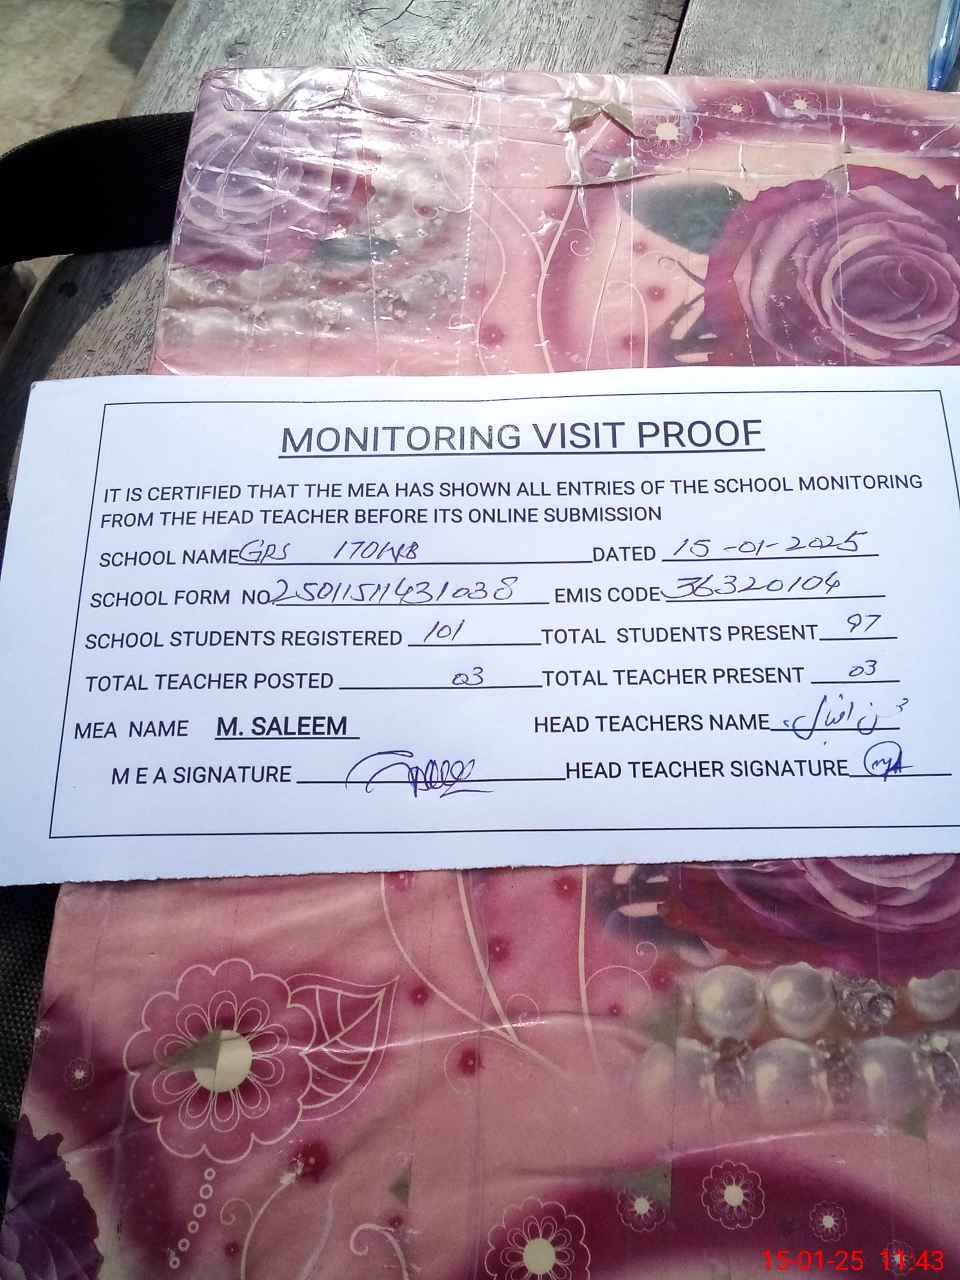 MONITORING VISIT PROOF
IT IS CERTIFIED THAT THE MEA HAS SHOWN ALL ENTRIES OF THE SCHOOL MONITORING
FROM THE HEAD TEACHER BEFORE ITS ONLINE SUBMISSION
SCHOOL NAME GPS 170WB DATED 15-01-2025
SCHOOL FORM NO 2501151431038 EMIS CODE 36320104
SCHOOL STUDENTS REGISTERED 101 TOTAL STUDENTS PRESENT 97
TOTAL TEACHER POSTED 03 TOTAL TEACHER PRESENT 03
MEA NAME M. SALEEM HEAD TEACHERS NAME
M E A SIGNATURE HEAD TEACHER SIGNATURE
15-01-25 11:43